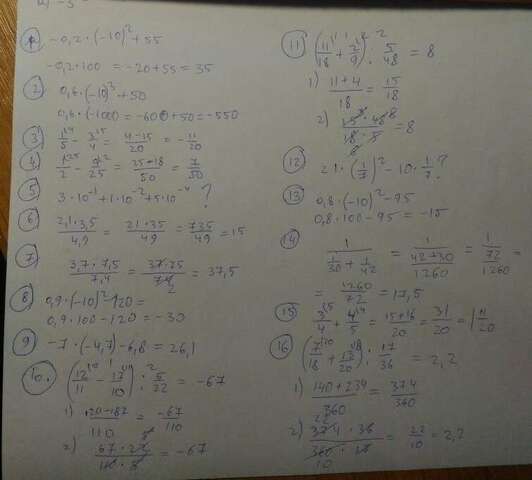 -0,2·(-10)²+55
-0,2·100 = -20+55 = 35
2 0,6·(-10)³+50
0,6·(-1000) = -600+50 = -550
3 1/5 - 3/4 = 4-15/20 = -11/20
4 1/2 - 9/25 = 25-18/50 = 7/50
5 3·10⁻¹+1·10⁻²+5·10⁻⁴ ?
6 2,1·3,5/4,9 = 21·35/49 = 735/49 = 15
7 3,7·7,5/7,4 = 37·75/74 = 37,5
8 0,9·(-10)²-120 =
0,9·100-120 = -30
9 -7·(-4,7)-6,8 = 26,1
10. (12/11 - 17/10) : 5/22 = -67
1) 120-187/110 = -67/110
2) 67·22/110·5 = -67
11 (11/18 + 2/9) : 5/48 = 8
1) 11+4/18 = 15/18
2) 15·48/18·5 = 8
12 21·(1/7)²-10·1/7 ?
13 0,8·(-10)²-95
0,8·100-95 = -15
14 1/(1/30 + 1/42) = 1/(42+30/1260) = 1/(72/1260) =
= 1260/72 = 17,5
15 3/4 + 4/5 = 15+16/20 = 31/20 = 1 11/20
16 (7/18 + 13/20) : 17/36 = 2,2
1) 140+234/360 = 374/360
2) 374·36/360·17 = 22/10 = 2,2